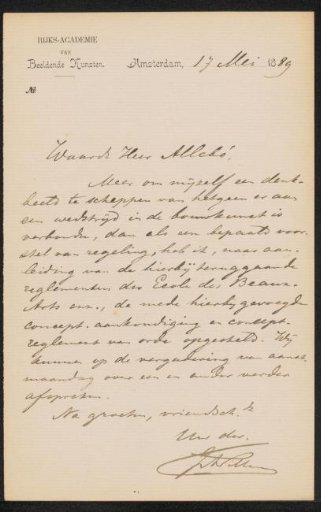 RIJKS-ACADEMIE
VAN
Beeldende Kunsten.
Amsterdam, 17 Mei 1889
No
Waarde Heer Allebé,
Meer om mijzelf een denk-
beeld te scheppen van hetgeen er aan
een wedstrijd in de bouwkunst is
verbonden, dan als een bepaald voor-
stel van regeling, heb ik, naar aan-
leiding van de hierbij teruggaande
reglementen der Ecole des Beaux-
Arts enz., de mede hierbij gevoegde
concept-aankondiging en concept-
reglement van orde opgesteld. Wij
kunnen op de vergadering van aanst.
maandag over een en ander verder
afspreken.
Na groeten, vriendsch.
Uw dw.